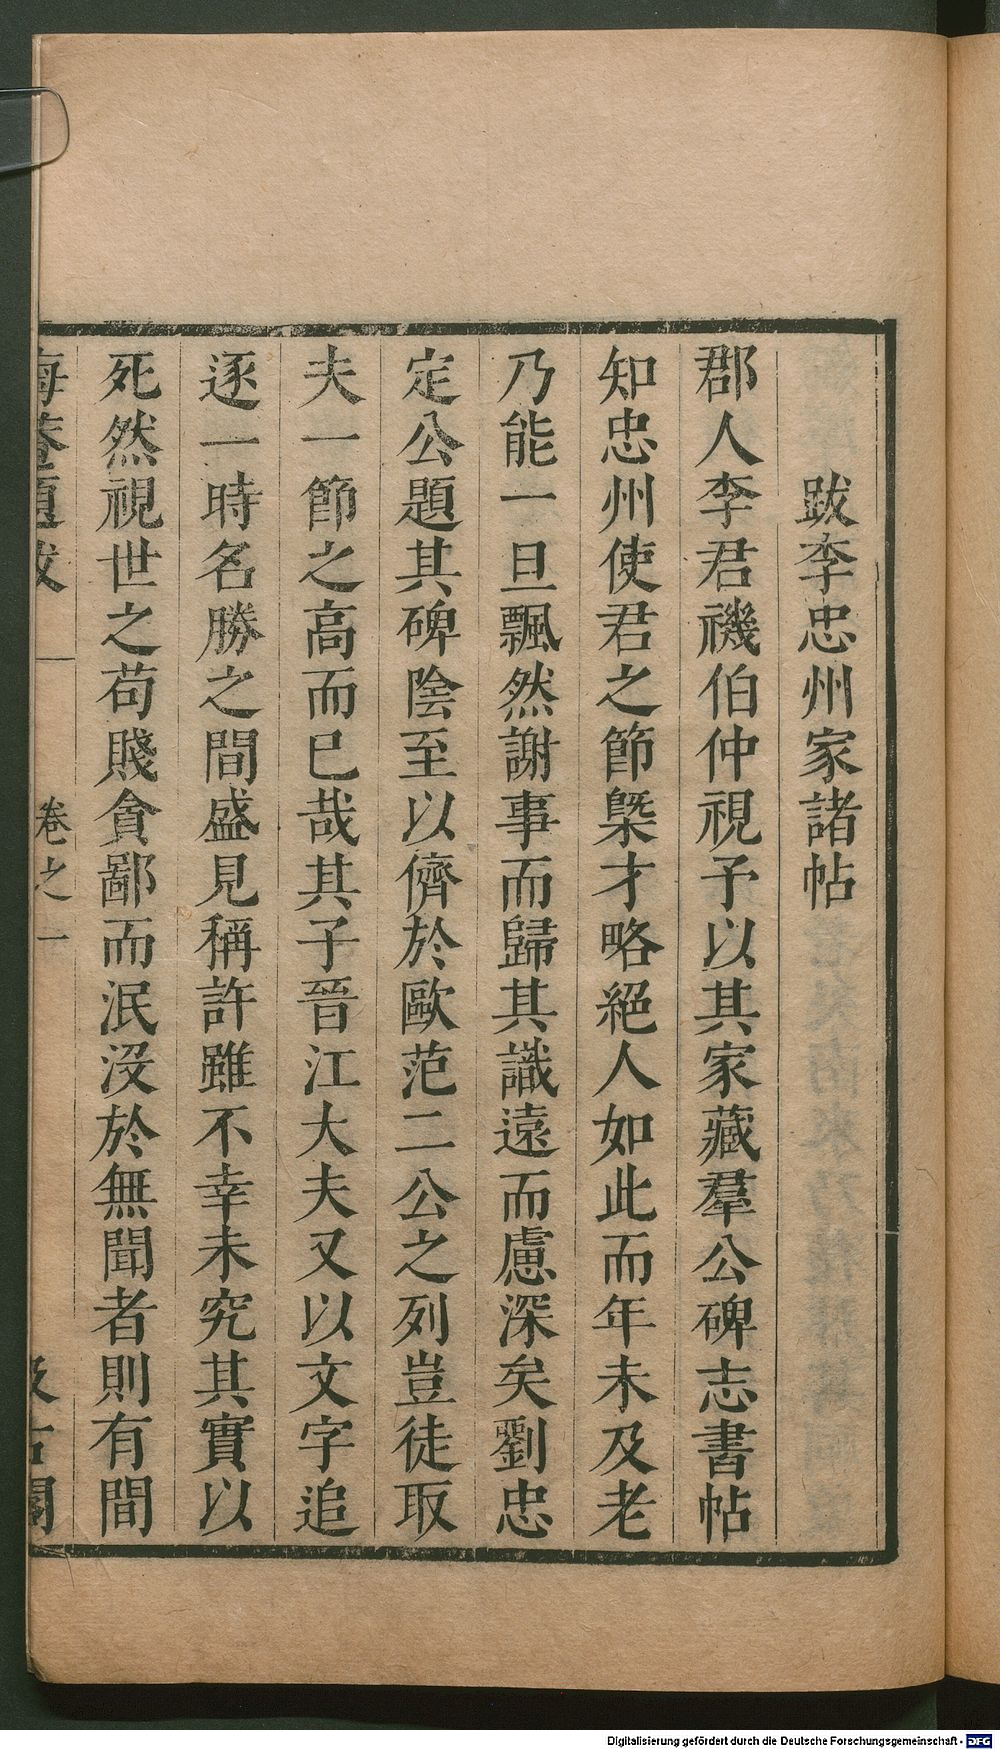 跋李忠州家諸帖
郡人李君禨伯仲視予以其家藏羣公碑志書帖
知忠州使君之節槩才略絕人如此而年未及老
乃能一旦飄然謝事而歸其識遠而慮深矣劉忠
定公題其碑陰至以儕於歐范二公之列豈徒取
夫一節之高而已哉其子晉江大夫又以文字追
逐一時名勝之間盛見稱許雖不幸未究其實以
死然視世之苟賤貪鄙而泯沒於無聞者則有間
海菴題跋 卷之一 汲古閣
Digitalisierung gefördert durch die Deutsche Forschungsgemeinschaft - DFG